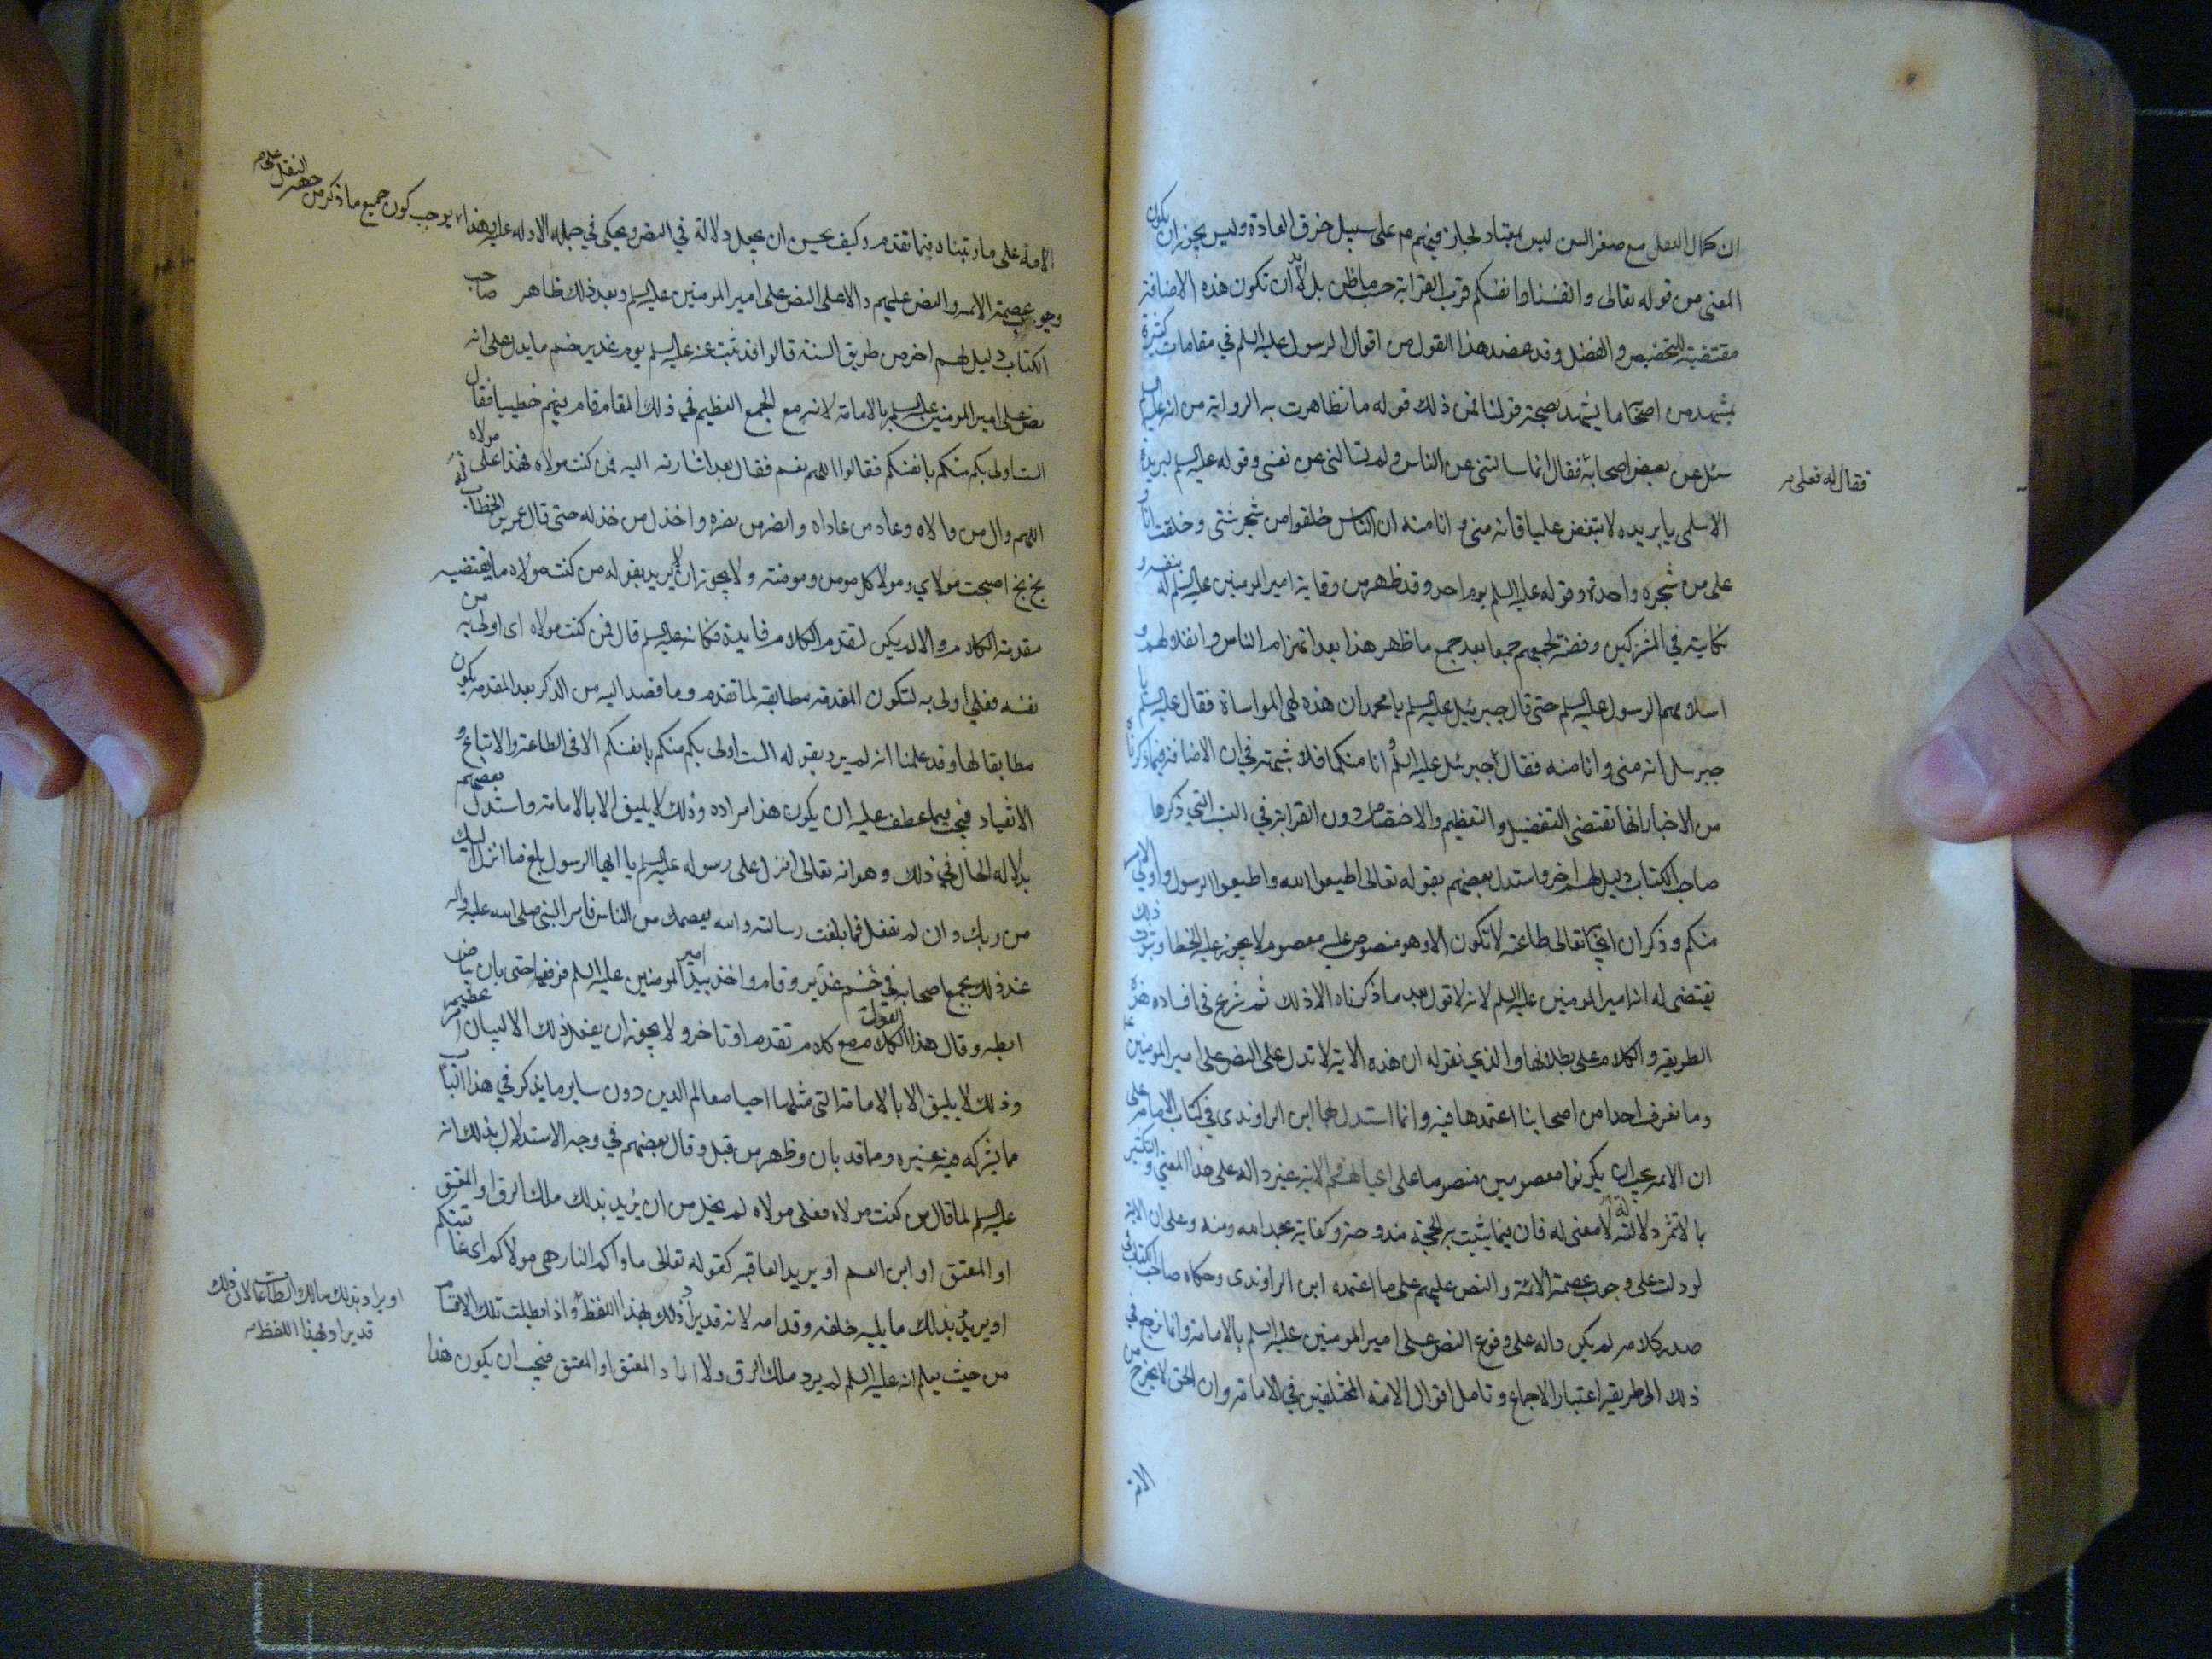 ان كمال العقل مع صغر السن ليس بمعتاد لجاز فيهم ع م على سبيل خرق العادة وليس يجوز ان يكون
المعنى من قوله تعالى وانفسنا وانفسكم قرب القرابة حسب ما ظن بل لا بد ان تكون هذه الاضافة
مقتضية للتخصيص والفضل وقد عضد هذا القول من اقوال الرسول عليه السلم في مقامات كثيرة
بمشهد من اصحابه ما يشهد بصحة قولنا فمن ذلك قوله ما تظاهرت به الرواية من انه عليه السلم
سئل عن بعض اصحابه فقال انما سالتني عن الناس ولم تسالني عن نفسي وقوله عليه السلم لبريدة
فقال له فعلي
الاسلمي يا بريده لا تبغض عليا فانه مني وانا منه ان الناس خلقوا من شجر شتى وخلقت انا و
علي من شجره واحدة وقوله عليه السلم يوم احد وقد ظهر من وقاية امير المومنين عليه السلم له بنفسه و
نكايته في المشركين وفضه لجمعهم جمعا بعد جمع ما ظهر هذا بعد انهزام الناس وانفلالهم و
اسلامهم الرسول عليه السلم حتى قال جبرئيل عليه السلم يا محمد ان هذه لهي المواساة فقال عليه السلم يا
جبرئيل انه مني وانا منه فقال جبرئيل عليه السلم وانا منكما فلا شبهة في ان الاضافة فيما ذكرناه
من الاخبار انها تقتضي التفضيل والتعظيم والاختصاص دون القرابة في النسب التي ذكرها
صاحب الكتاب دليل لهم اخر واستدل بعضهم بقوله تعالى اطيعوا الله واطيعوا الرسول واولي الامر
منكم وذكر ان ايجابه تعالى طاعته لا تكون الا وهو منصوص عليه معصوم لا يجوز عليه الخطا وثبوت ذلك
يقتضي له انه امير المومنين عليه السلم لانه لا قول بعد ما ذكرناه الا ذلك ثم شرع في افساده هذه
الطريقه والكلام على بطلانها والذي نقوله ان هذه الاية لا تدل على النص على امير المومنين ع
وما نعرف احدا من اصحابنا اعتمدها فيه وانما استدل بها ابن الراوندي في كتاب الامامه على
ان الائمه يجب ان يكونوا معصومين منصوصا على اعيانهم والاية غير داله على هذا المعنى والتكثير
بما لا تثمر دلالته لا معنى له فان فيما يثبت به الحجة مندوحة وكفاية بحمد الله ومنه وعلى ان الاية
لو دلت على وجوب عصمة الائمة والنص عليهم على ما اعتمده ابن الراوندي وحكاه صاحب الكتاب في
صدر كلامه لم يكن داله على وقوع النص على امير المومنين عليه السلم بالامامه وانما نرجع في
ذلك الى طريقه اعتبار الاجماع وتامل اقوال الامة المختلفين في الامامه وان الحق لا يخرج من
الامة على ما رتبناه فيما تقدم وكيف يحسن ان يجعل دلالة في النص ويحكى في جملة الادله عليه وهذا يوجب كون جميع ما ذكر من جهه النقل على
وجوب عصمة الائمه والنص عليهم دالا على النص على امير المومنين عليه السلم وبعد ذلك ظاهر صاحب
الكتاب دليل لهم اخر من طريق السنة قالوا قد ثبت عنه عليه السلم يوم غدير خم ما يدل على انه
نص على امير المومنين عليه السلم بالامامة لانه مع الجمع العظيم في ذلك المقام قام فيهم خطيبا فقال
الست اولى بكم منكم بانفسكم فقالوا اللهم نعم فقال بعد اشارته اليه فمن كنت مولاه فهذا علي مولاه
اللهم وال من والاه وعاد من عاداه وانصر من نصره واخذل من خذله حتى قال عمر بن الخطاب له
بخ بخ اصبحت مولاي ومولا كل مومن ومومنة ولا يجوز ان لا يريد بقوله من كنت مولاه ما يقتضيه
مقدمة الكلام والا لم يكن لتقدم الكلام فايدة فكانه عليه السلم قال فمن كنت مولاه اى اولى به من
نفسه فعلي اولى به لتكون المقدمة مطابقة لما تقدم وما قصد اليه من الذكر بعد المقدمه يكون
مطابقا لها وقد علمنا انه لم يرد بقوله الست اولى بكم منكم بانفسكم الا في الطاعة والاتباع و
الانقياد فيجب فيما عطف عليه ان يكون هذا مراده وذلك لا يليق الا بالامامة واستدل بعضهم
بدلاله الحال في ذلك وهو انه تعالى انزل على رسوله عليه السلم يا ايها الرسول بلغ ما انزل اليك
من ربك وان لم تفعل فما بلغت رسالته والله يعصمك من الناس فامر النبي صلى الله عليه واله
عند ذلك بجمع اصحابه في خم غدير وقام واخذ بيد امير المومنين عليه السلم فرفعها حتى بان بياض
ابطيه وقال هذا القول مع كلام تقدم او تاخر ولا يجوز ان يفعل ذلك الا لبيان امر عظيم
وذلك لا يليق الا بالامامة التي مثلها احيا معالم الدين دون ساير ما يذكر في هذا الباب
مما يشركه فيه غيره ومما قد بان وظهر من قبل وقال بعضهم في وجه الاستدلال بذلك انه
عليه السلم لما قال من كنت مولاه فعلي مولاه لم يخل من ان يريد بذلك ملك الرق او المعتق
او المعتق او ابن العم او يريد العاقبه كقوله تعالى ماواكم النار هي مولاكم اى عاقبتكم
او يريد بذلك ما يليه خلفه وقدامه لانه قد يراد ذلك بهذا اللفظ واذا بطلت تلك الاقسام
او يراد بذلك مالك الطاعة لان ذلك
قد يراد بهذا اللفظ
من حيث يعلم انه عليه السلم لم يرد ملك الرق ولا اراد المعتق او المعتق فيجب ان يكون هذا